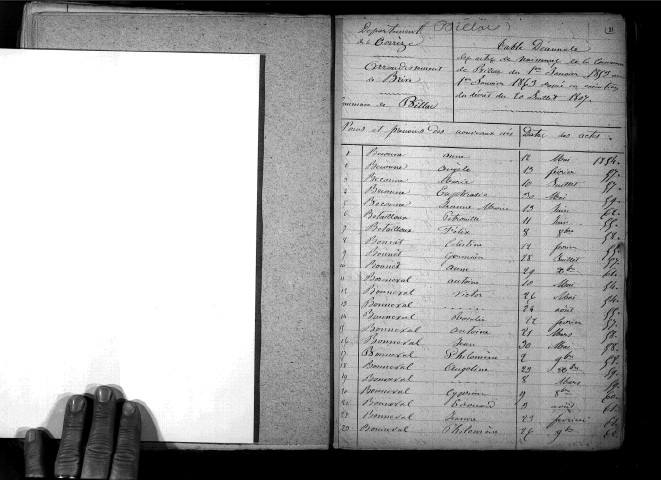 Billac
Département
de la Corrèze
Arrondissement
de Brive
Commune de Billac
Table Décennale
des actes de naissance de la Commune
de Billac du 1er Janvier 1853 au
1er Janvier 1863 dressée en exécution
du décret du 20 Juillet 1807.
Noms et prénoms des nouveaux nés Dates des actes.
1 anne 12 Mai 1854.
2 Angèle 13 février 57.
3 Maria 10 Juillet 57.
4 Euphrasie 30 Mai 59.
5 Jeanne Marie 13 Juin
6 Betailloux Pétronille 11 Juin
7 Betailloux Félix 8 8bre 58.
8 Bonnet Célestine 12 février
9 Bonnet 28 Juillet 57.
10 Bonnet anne 29
11 Bonneval antoine 10 Mai 54.
12 Bonneval Victor 26 Mai 54.
13 Bonneval 24 août 55.
14 Bonneval Rosalie 12 février 57.
15 Bonneval antoine 21 Mars 58.
16 Bonneval Jean 30 Mai 58.
17 Bonneval Philomène 2 9bre 58.
18 Bonneval Angeline 29 59.
19 Bonneval 8 Mars 59.
20 Bonneval Cyprien 9 8bre 60.
Bonneval Edouard 9 août 61.
Bonneval Jeanne 23 février
Bonneval Philomène 26 9bre 62.